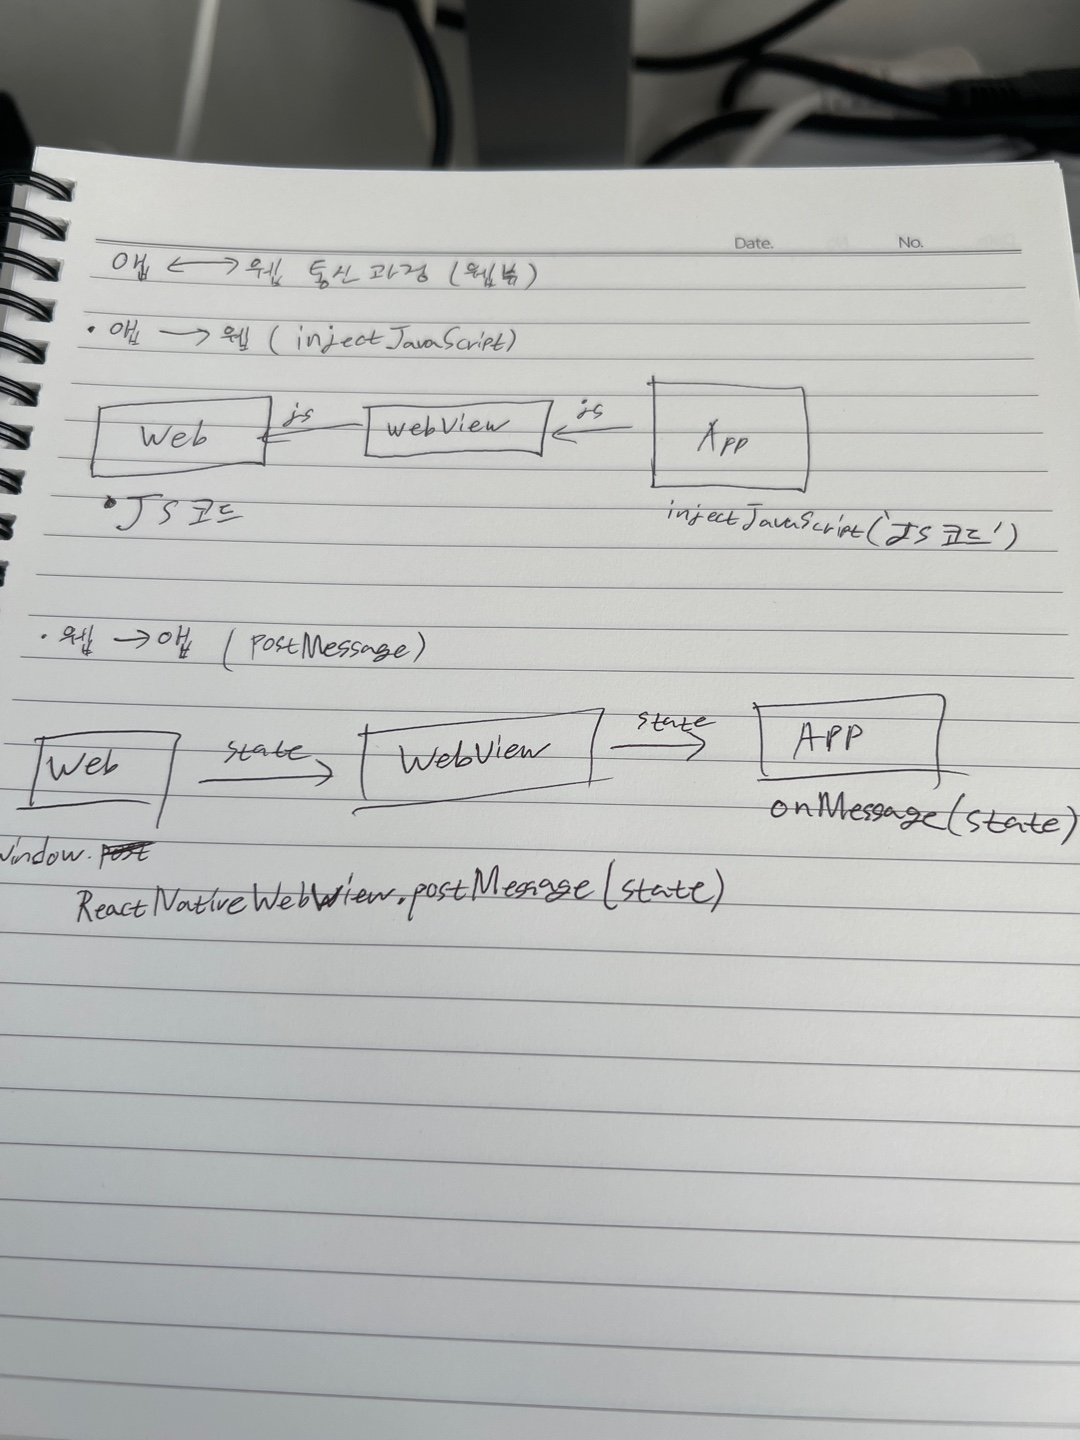 Date. No.
앱 ↔ 웹 통신 과정 (웹뷰)
• 앱 → 웹 ( injectJavaScript)
Web js webView js App
• JS 코드
injectJavaScript('JS 코드')
• 웹 → 앱 ( postMessage)
Web state WebView state APP
onMessage(state)
window.
ReactNativeWebView.postMessage(state)